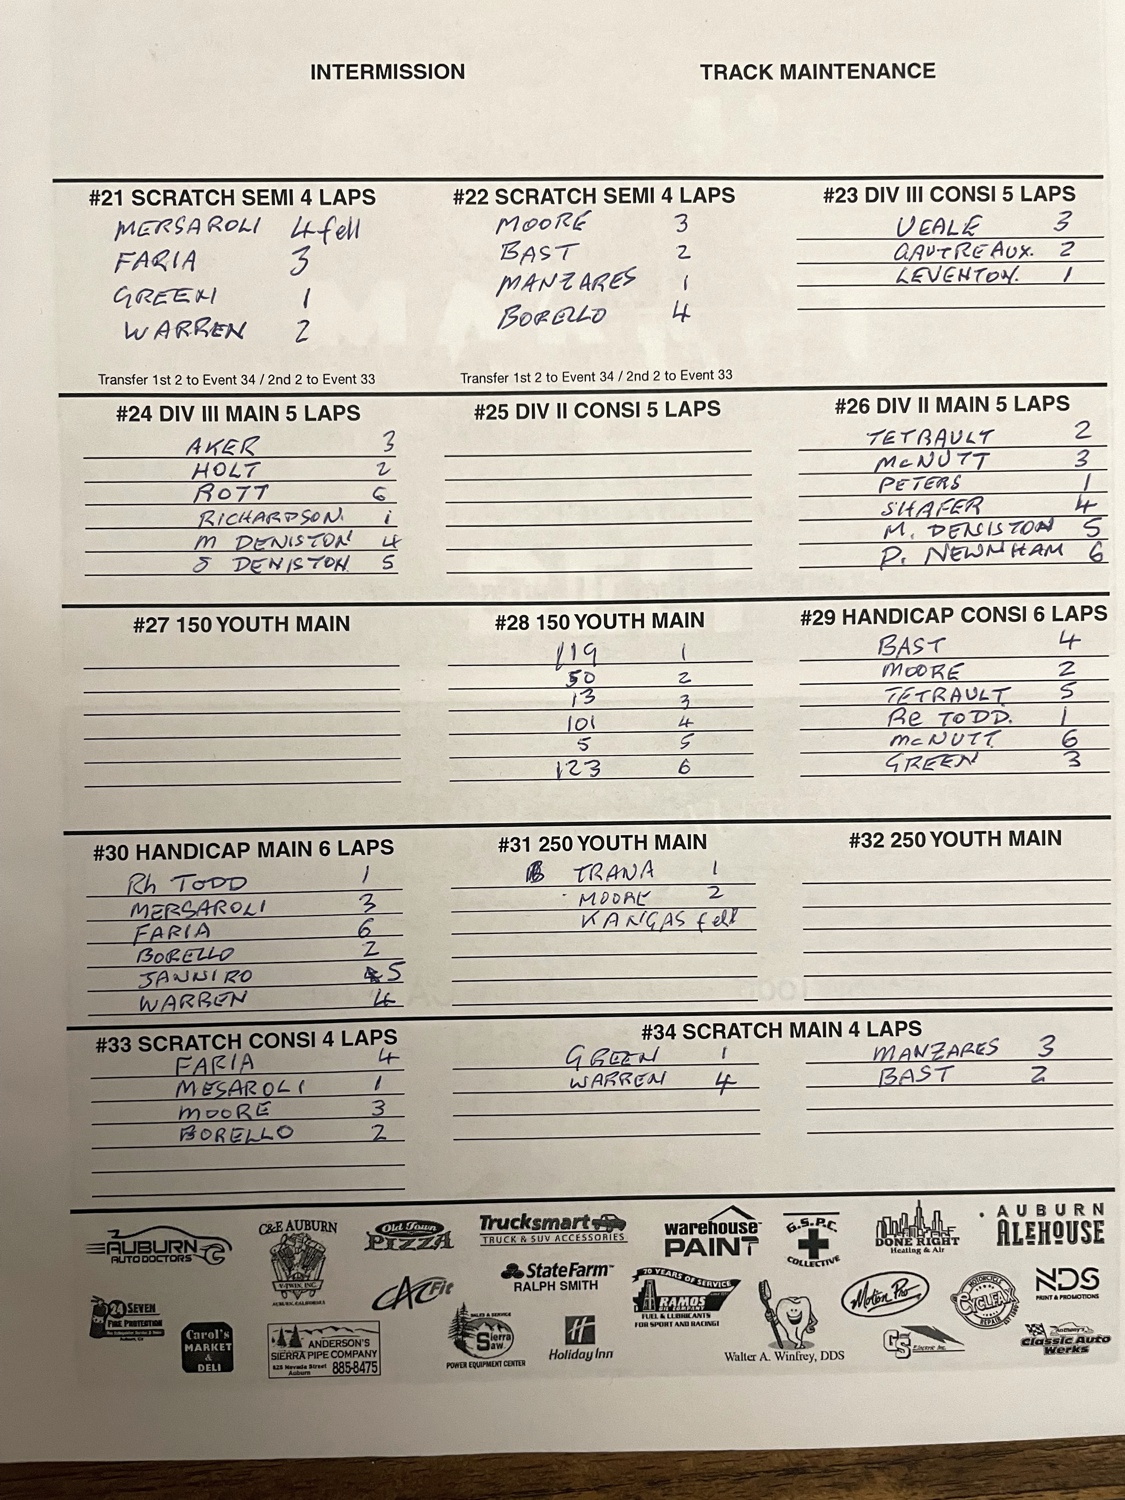 INTERMISSION
TRACK MAINTENANCE
#21 SCRATCH SEMI 4 LAPS
MERSAROLI 4 fell
FARIA 3
GREEN 1
WARREN 2
Transfer 1st 2 to Event 34 / 2nd 2 to Event 33
#22 SCRATCH SEMI 4 LAPS
MOORE 3
BAST 2
MANZARES 1
BORELLO 4
Transfer 1st 2 to Event 34 / 2nd 2 to Event 33
#23 DIV III CONSI 5 LAPS
VEALE 3
GAUTREAUX. 2
LEVENTON. 1
#24 DIV III MAIN 5 LAPS
AKER 3
HOLT 2
ROTT 6
RICHARDSON. 1
M DENISTON 4
S DENISTON 5
#25 DIV II CONSI 5 LAPS
#26 DIV II MAIN 5 LAPS
TETRAULT 2
McNUTT 3
PETERS 1
SHAFER 4
M. DENISTON 5
D. NEWNHAM 6
#27 150 YOUTH MAIN
#28 150 YOUTH MAIN
119 1
50 2
13 3
101 4
5 5
123 6
#29 HANDICAP CONSI 6 LAPS
BAST 4
MOORE 2
TETRAULT 5
Re TODD. 1
McNUTT 6
GREEN 3
#30 HANDICAP MAIN 6 LAPS
Rh TODD 1
MERSAROLI 3
FARIA 6
BORELLO 2
JANNIRO 5
WARREN 4
#31 250 YOUTH MAIN
TRANA 1
MOORE 2
KANGAS fell
#32 250 YOUTH MAIN
#33 SCRATCH CONSI 4 LAPS
FARIA 4
MESAROLI 1
MOORE 3
BORELLO 2
#34 SCRATCH MAIN 4 LAPS
GREEN 1
WARREN 4
MANZARES 3
BAST 2
AUBURN
AUTO DOCTORS
C&E AUBURN
V-TWIN, INC.
AUBURN, CALIFORNIA
Old Town
PIZZA
Trucksmart
TRUCK & SUV ACCESSORIES
warehouse
PAINT
G.S.P.C.
COLLECTIVE
DONE RIGHT
Heating & Air
AUBURN
ALEHOUSE
24 SEVEN
FIRE PROTECTION
CAC Fit
StateFarm™
RALPH SMITH
20 YEARS OF SERVICE
RAMOS
OIL COMPANY
FUEL & LUBRICANTS
FOR SPORT AND RACING!
Motion Pro
MOTORCYCLE
CYCLEFIX
REPAIR
NDS
PRINT & PROMOTIONS
Carol's
MARKET
&
DELI
ANDERSON'S
SIERRA PIPE COMPANY
Nevada Street
Auburn
885-8475
SALES & SERVICE
Sierra
Saw
POWER EQUIPMENT CENTER
H
Holiday Inn
Walter A. Winfrey, DDS
GS
Electric Inc.
Classic Auto
Werks